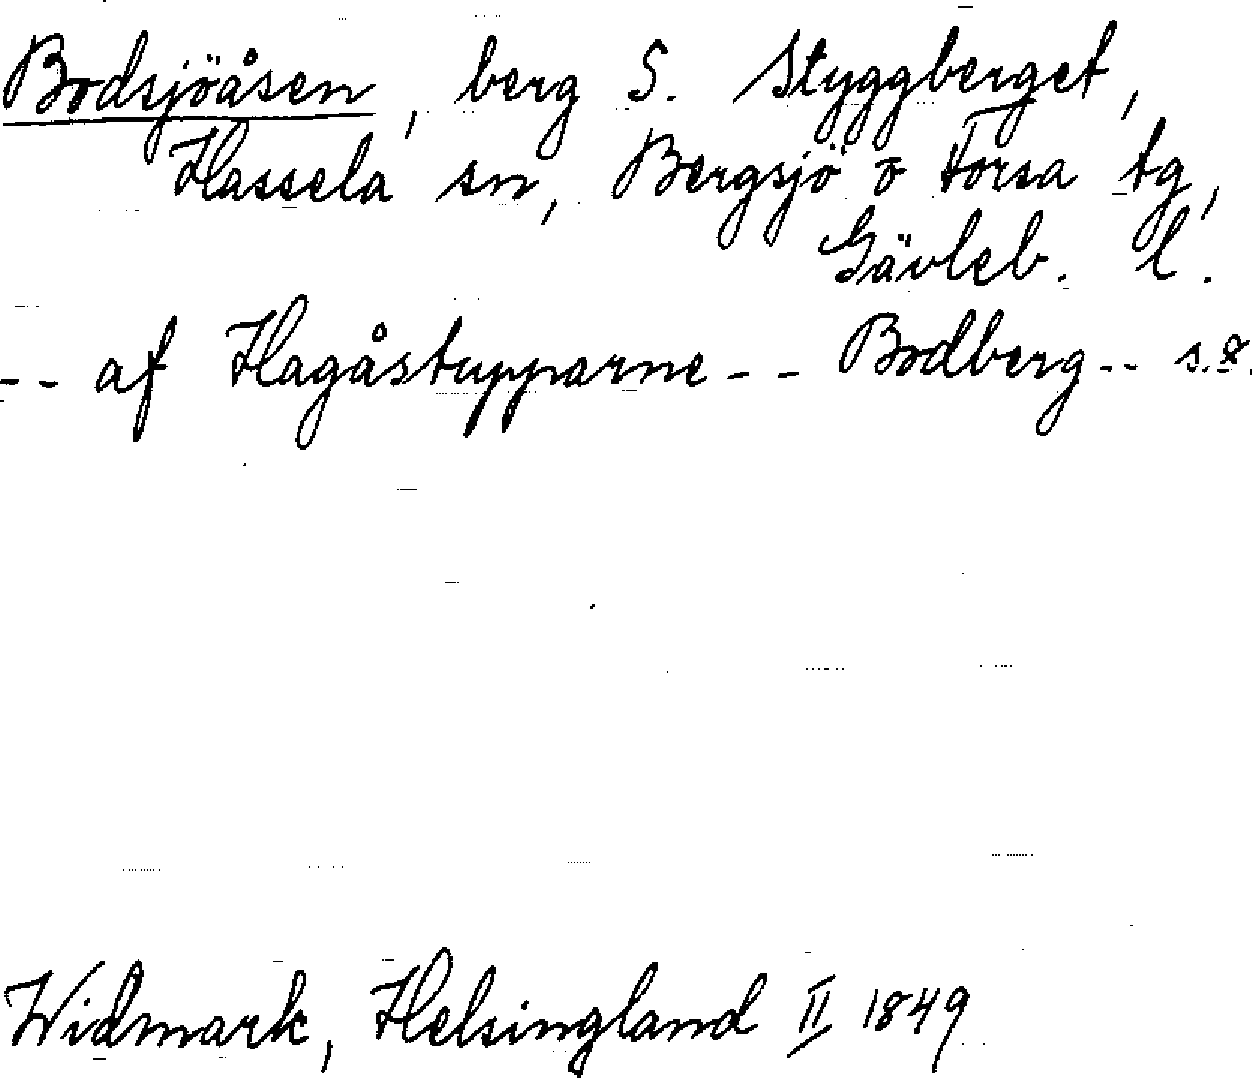 Bodsjöåsen, berg S. Styggberget,
Hassela sn, Bergsjö o Forsa tg,
Gävleb. l.
-- af Hagåstupparne -- Bodberg -- s. 8.
Widmark, Helsingland II 1849